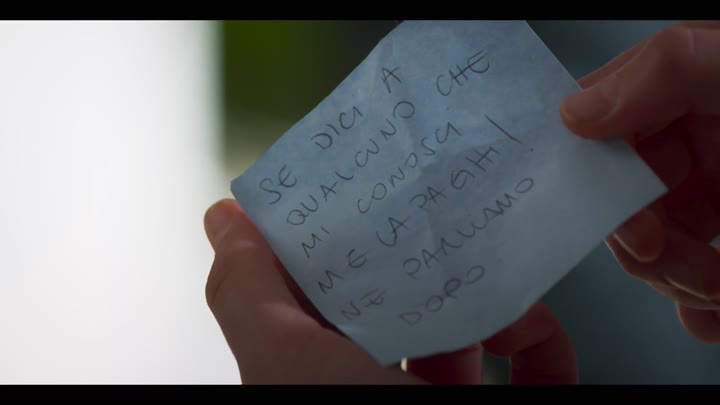 SE DICI A
QUALCUNO CHE
MI CONOSCI
ME LA PAGHI!
NE PARLIAMO
DOPO